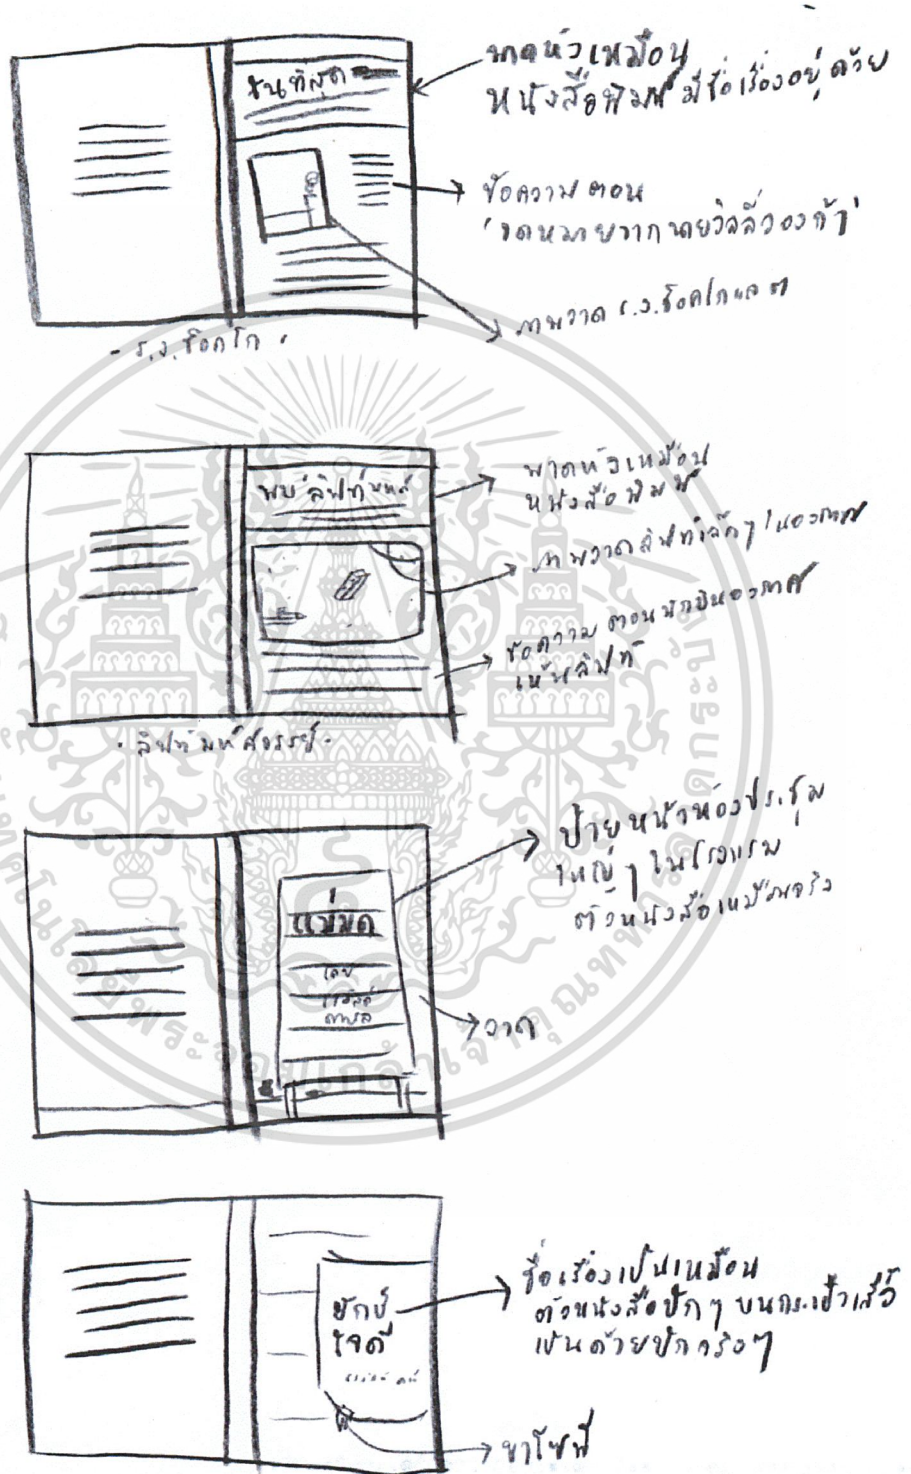 ในที่สุด
พาดหัวเหมือน
หนังสือพิมพ์ มีชื่อเรื่องอยู่ด้วย
ข้อความตอน
'จดหมายจากนายวิลลี่วองก้า'
ภาพวาด ร.ง.ช็อคโกแลต
- ร.ง.ช็อคโก -
พบลิฟท์
พาดหัวเหมือน
หนังสือพิมพ์
ภาพวาดลิฟท์เล็กๆ ในอวกาศ
ข้อความตอนนักบินอวกาศ
เห็นลิฟท์
- ลิฟท์มหัศจรรย์ -
แม่มด
โดย
โรอัลด์
ดาห์ล
ป้ายหน้าห้องประชุม
ใหญ่ๆ ในโรงแรม
ตัวหนังสือเหมือนจริง
วาด
ยักษ์
ใจดี
ชื่อเรื่องเป็นเหมือน
ตัวหนังสือปักๆ บนกระเป๋าเสื้อ
เป็นด้ายปักจริงๆ
ขาโซฟี
พระจอมเกล้าเจ้าคุณทหารลาดกระบัง